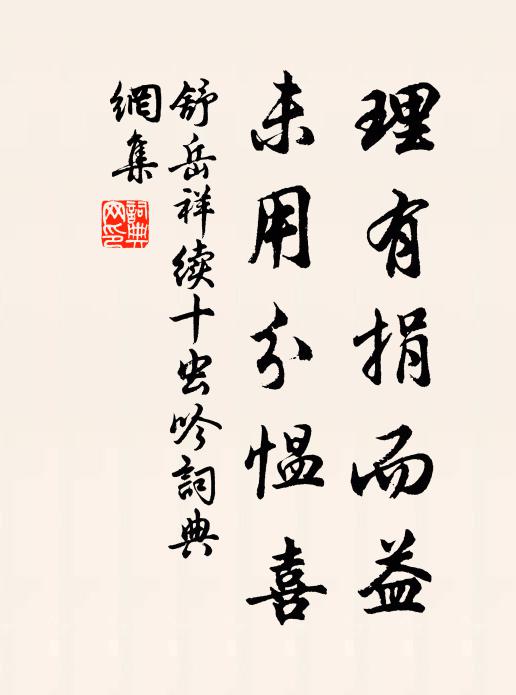 理有捐而益
未用分愠喜
舒岳祥续十虫吟詞典
網集
詞典
网印